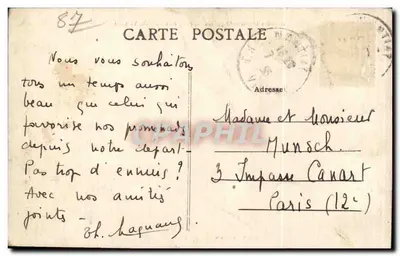 87
CARTE POSTALE
Adresse
Nous vous souhaitons
tous un temps aussi
beau que celui qui
favorise nos promenades
depuis notre départ -
Pas trop d'ennuis ?
Avec nos amitiés
jointes -
Madame et Monsieur
Munsch
3 Impasse Canart
Paris (12e)